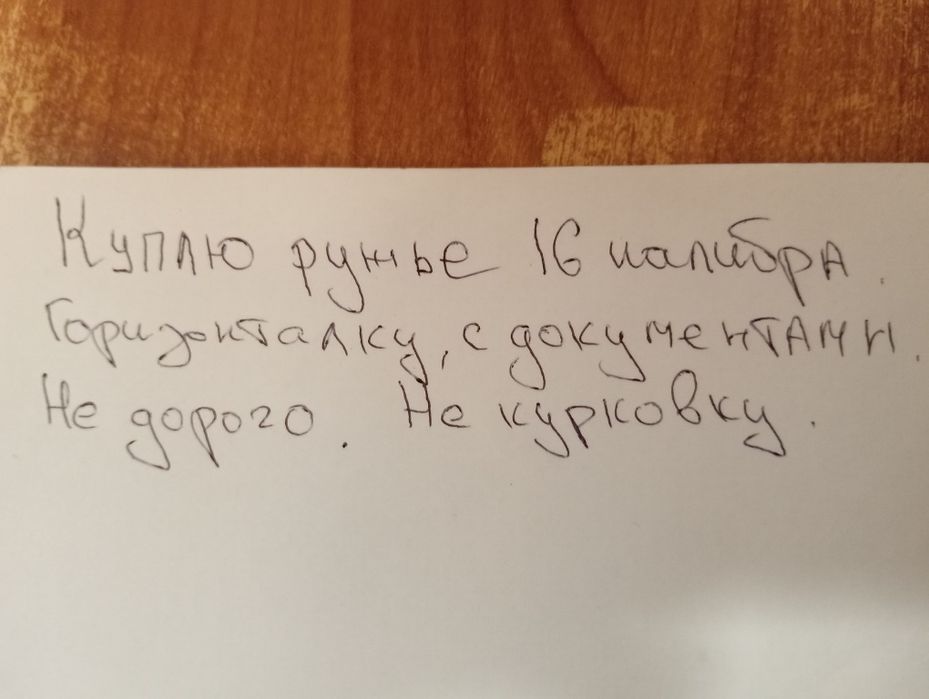 Куплю ружье 16 калибра.
Горизонталку, с документами.
Не дорого. Не курковку.